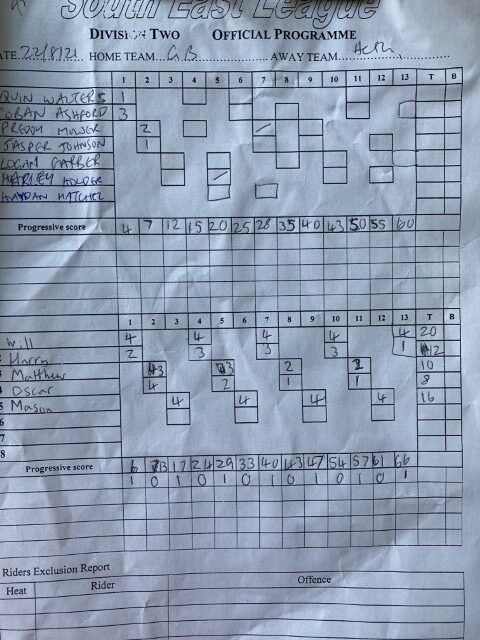 South East League
DIVISION TWO OFFICIAL PROGRAMME
ATE 22/8/21 HOME TEAM G.B AWAY TEAM
1 2 3 4 5 6 7 8 9 10 11 12 13 T B
QUIN WALTERS 1
ASHFORD 3
2
JASPER JOHNSON 1
LOGAN
HARLEY HOLDER
Progressive score 4 7 12 15 20 25 28 35 40 43 50 55 60
1 2 3 4 5 6 7 8 9 10 11 12 13 T B
Will 4 4 4 4 4 20
Harry 2 3 3 3 1 12
Matthew 3 3 2 2 10
Oscar 4 2 1 1 8
5 Mason 4 4 4 4 16
6
7
8
Progressive score 6 13 17 24 29 33 40 43 47 54 57 61 66
1 0 1 0 1 0 1 0 1 0 1 0 1
Riders Exclusion Report
Heat Rider Offence